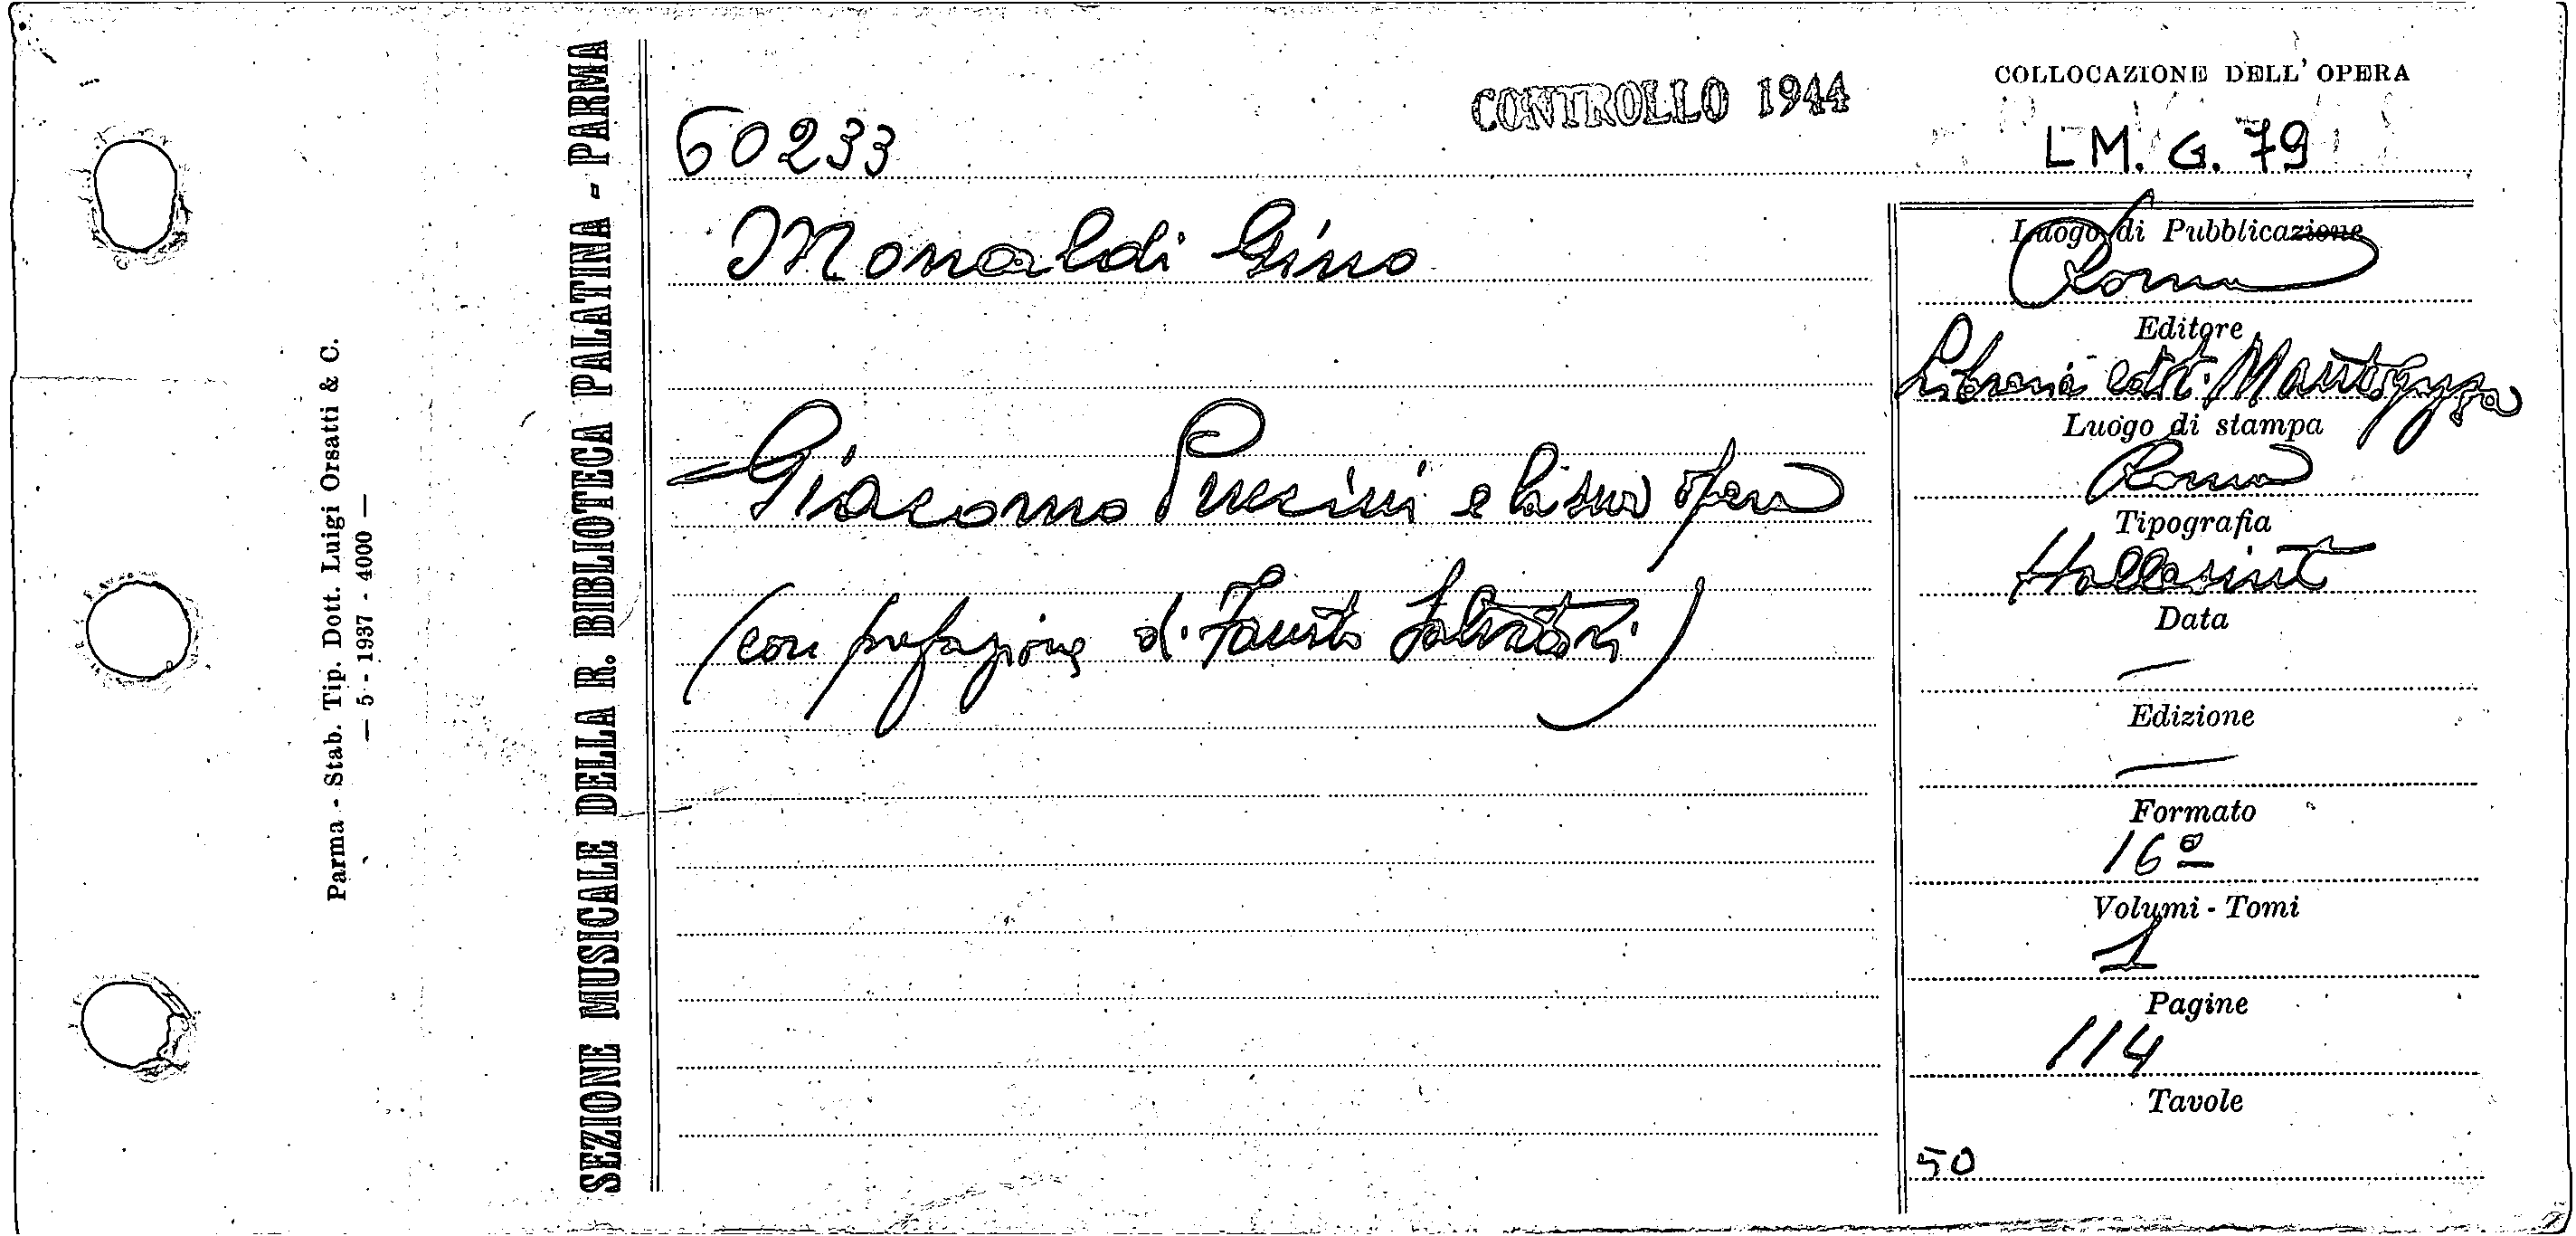 Parma - Stab. Tip. Dott. Luigi Orsatti & C.
— 5 - 1937 - 4000 —
SEZIONE MUSICALE DELLA R. BIBLIOTECA PALATINA - PARMA
60233
CONTROLLO 1944
COLLOCAZIONE DELL'OPERA
L M. G. 79
Monaldi Gino
Giacomo Puccini e la sua opera
(con prefazione di Fausto Salvatori)
Luogo di Pubblicazione
Roma
Editore
Libreria edit. Mantegazza
Luogo di stampa
Roma
Tipografia
Data
—
Edizione
—
Formato
16º
Volumi - Tomi
1
Pagine
114
Tavole
50